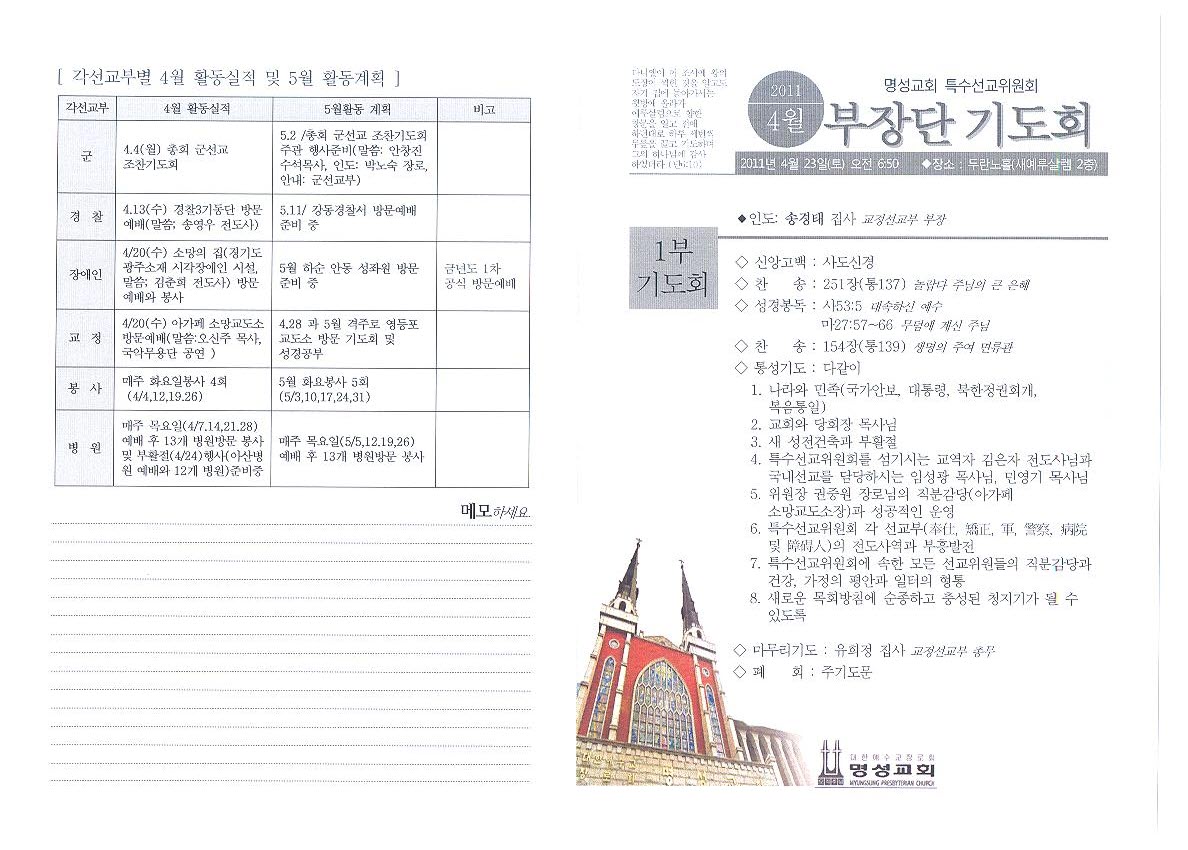 [ 각선교부별 4월 활동실적 및 5월 활동계획 ]
각선교부 4월 활동실적 5월활동 계획 비고
군
4.4(월) 총회 군선교
조찬기도회
5.2 /총회 군선교 조찬기도회
주관 행사준비(말씀: 안창진
수석목사, 인도: 박노숙 장로,
안내: 군선교부)
경 찰
4.13(수) 경찰3기동단 방문
예배(말씀; 송영우 전도사)
5.11/ 강동경찰서 방문예배
준비 중
장애인
4/20(수) 소망의 집(경기도
광주소재 시각장애인 시설,
말씀; 김춘희 전도사) 방문
예배와 봉사
5월 하순 안동 성좌원 방문
준비 중
금년도 1차
공식 방문예배
교 정
4/20(수) 아가페 소망교도소
방문예배(말씀:오신주 목사,
국악무용단 공연 )
4.28 과 5월 격주로 영등포
교도소 방문 기도회 및
성경공부
봉 사
매주 화요일봉사 4회
(4/4,12,19.26)
5월 화요봉사 5회
(5/3,10,17,24,31)
병 원
매주 목요일(4/7.14,21.28)
예배 후 13개 병원방문 봉사
및 부활절(4/24)행사(아산병
원 예배와 12개 병원)준비중
매주 목요일(5/5,12,19,26)
예배 후 13개 병원방문 봉사
메모하세요
다니엘이 이 조서에 왕의
도장이 찍힌 것을 알고도
자기 집에 돌아가서는
윗방에 올라가
예루살렘으로 향한
창문을 열고 전에
하던대로 하루 세번씩
무릎을 꿇고 기도하며
그의 하나님께 감사
하였더라 (단6:10)
2011
4월
명성교회 특수선교위원회
부장단 기도회
2011년 4월 23일(토) 오전 6:50 ◆장소 : 두란노홀(새예루살렘 2층)
◆인도: 송경태 집사 교정선교부 부장
1부
기도회
◇ 신앙고백 : 사도신경
◇ 찬 송 : 251장(통137) 놀랍다 주님의 큰 은혜
◇ 성경봉독 : 사53:5 대속하신 예수
마27:57~66 무덤에 계신 주님
◇ 찬 송 : 154장(통139) 생명의 주여 면류관
◇ 통성기도 : 다같이
1. 나라와 민족(국가안보, 대통령, 북한정권회개,
복음통일)
2. 교회와 당회장 목사님
3. 새 성전건축과 부활절
4. 특수선교위원회를 섬기시는 교역자 김은자 전도사님과
국내선교를 담당하시는 임성광 목사님, 민영기 목사님
5. 위원장 권중원 장로님의 직분감당(아가페
소망교도소장)과 성공적인 운영
6. 특수선교위원회 각 선교부(奉仕, 矯正, 軍, 警察, 病院
및 障碍人)의 전도사역과 부흥발전
7. 특수선교위원회에 속한 모든 선교위원들의 직분감당과
건강, 가정의 평안과 일터의 형통
8. 새로운 목회방침에 순종하고 충성된 청지기가 될 수
있도록
◇ 마무리기도 : 유희정 집사 교정선교부 총무
◇ 폐 회 : 주기도문
대한예수교장로회
명성교회
MYUNGSUNG PRESBYTERIAN CHURCH